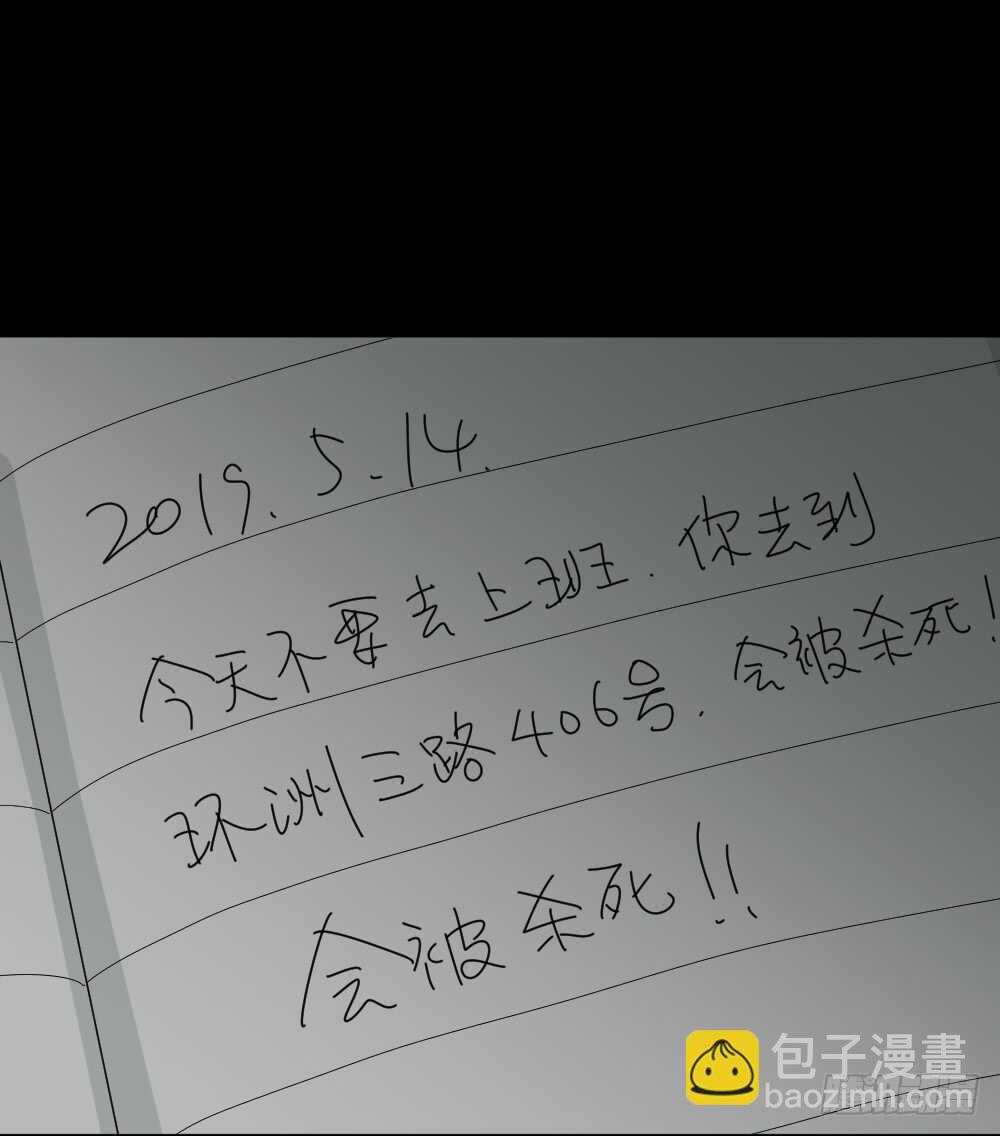 2019. 5. 14.
今天不要去上班. 你去到
环洲三路406号. 会被杀死!
会被杀死!!
包子漫畫
baozimh.com